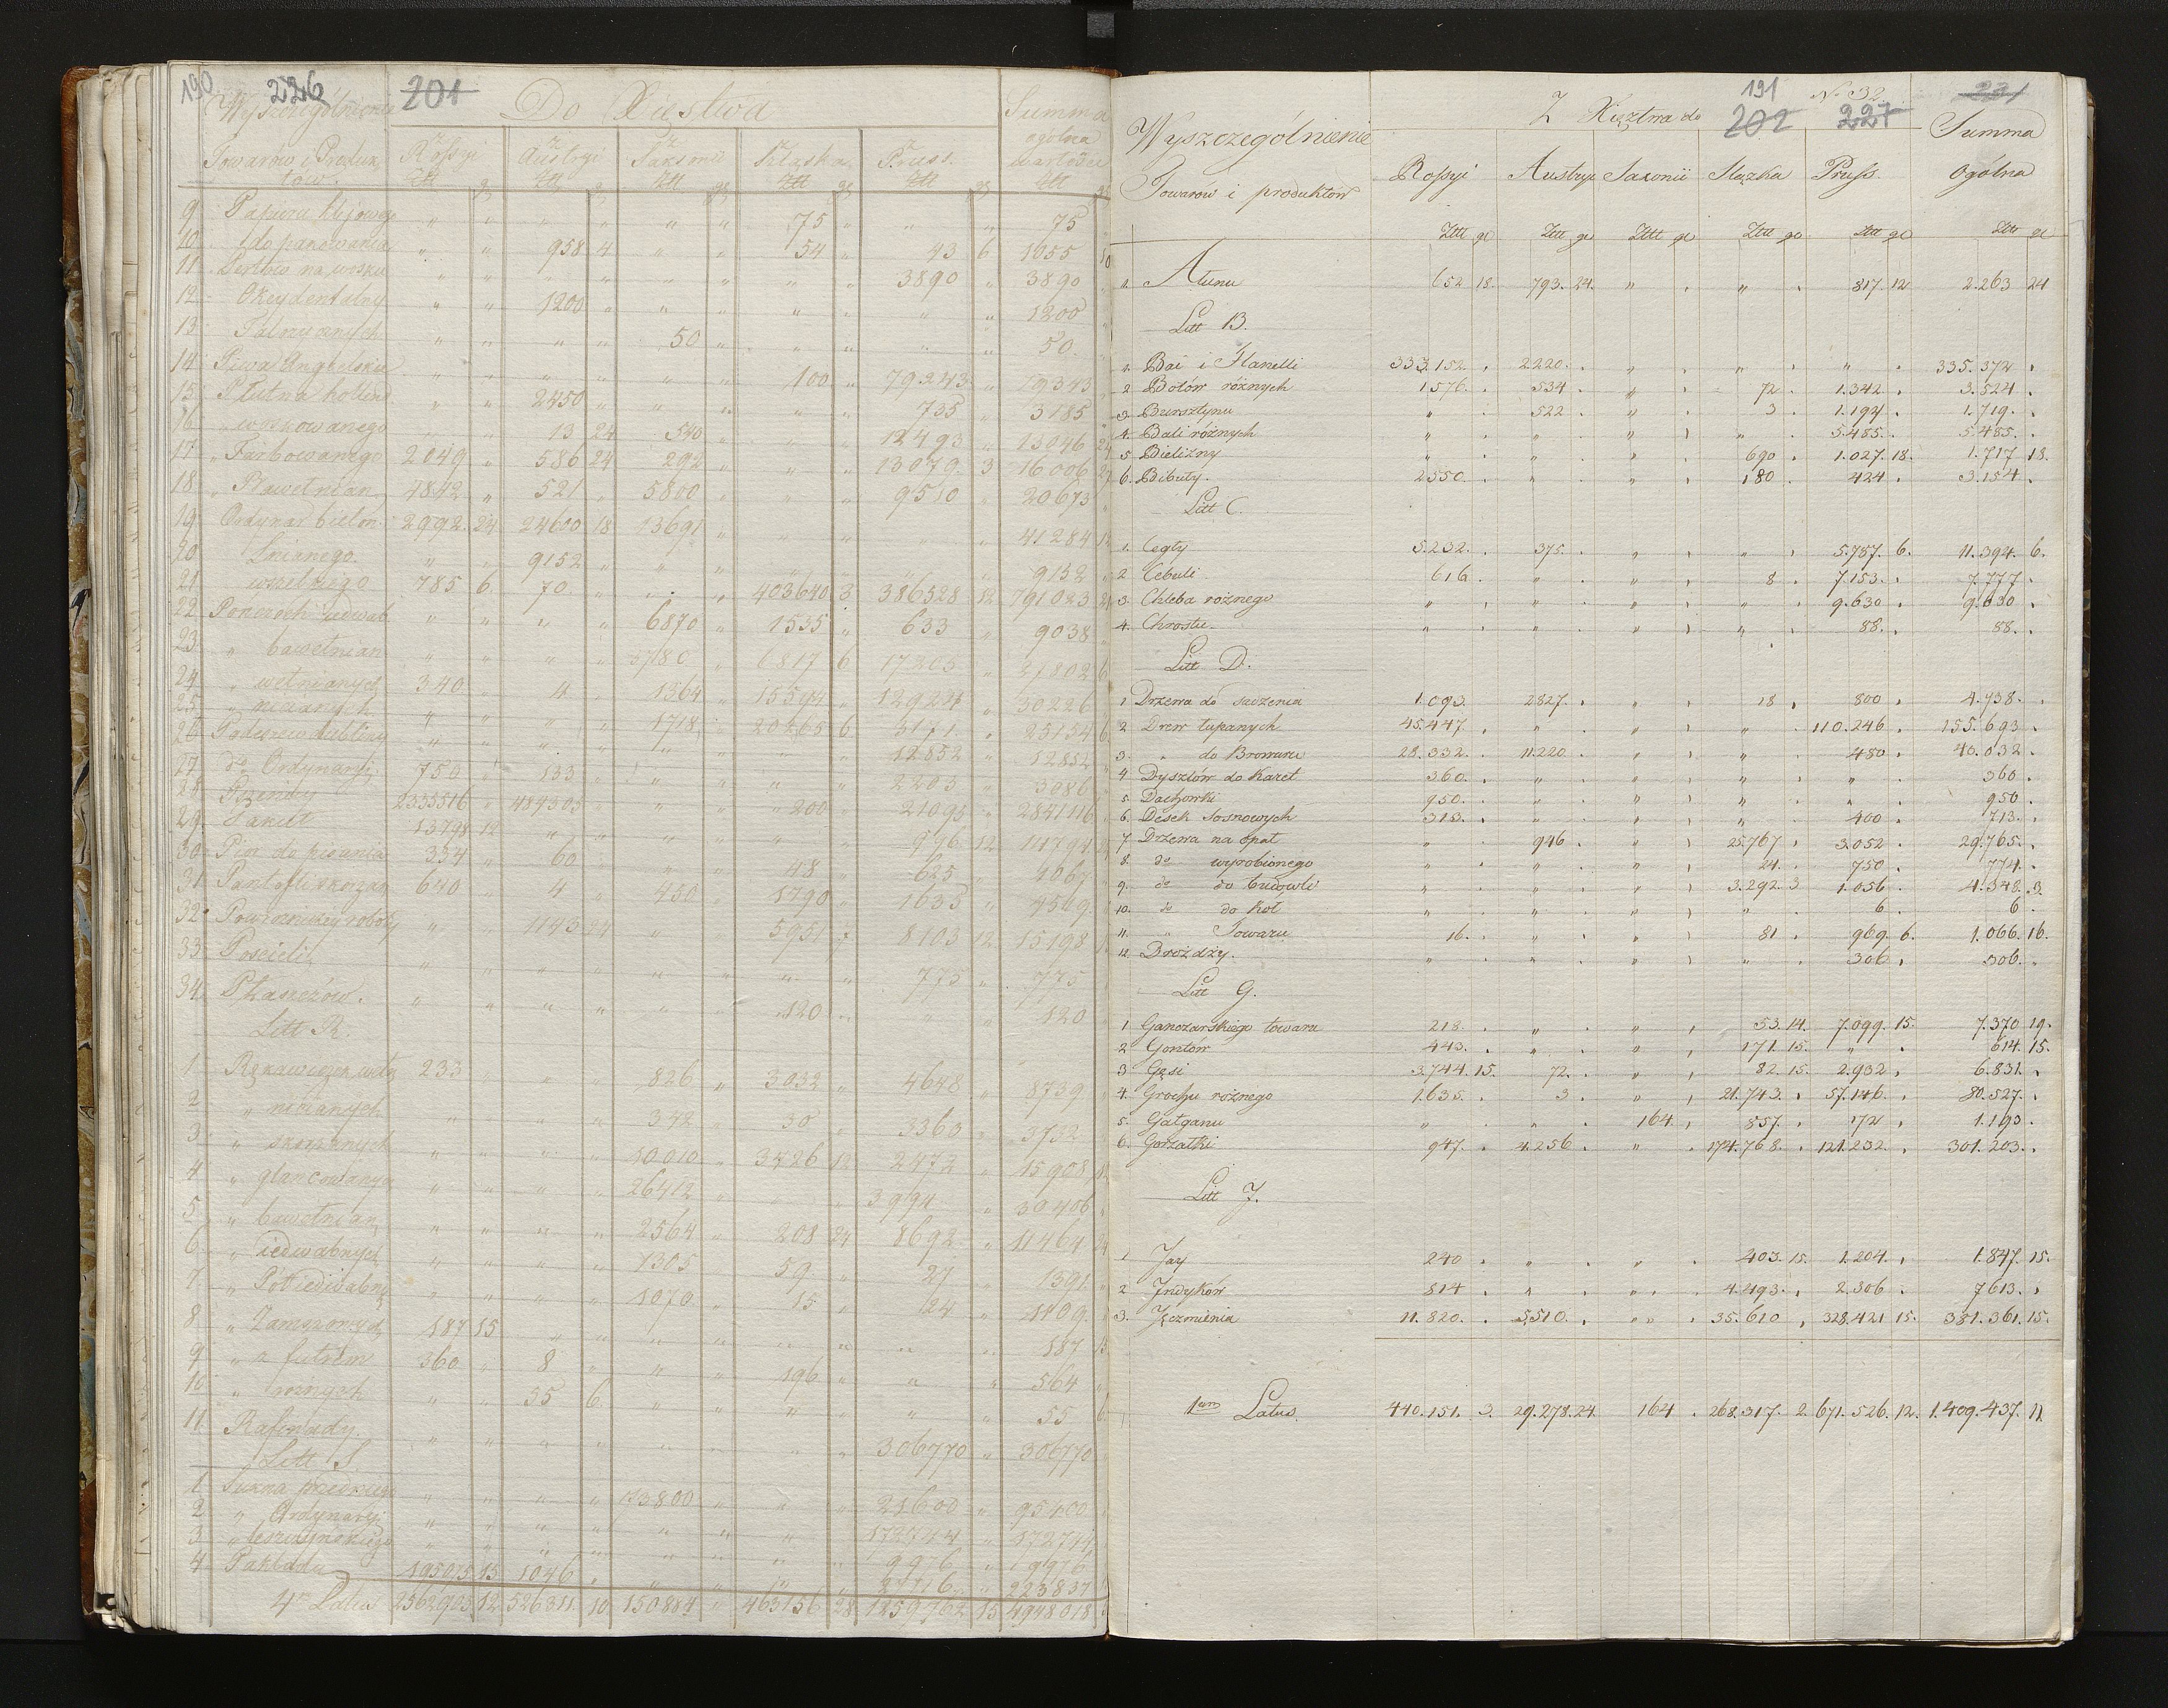 190 226 201
Wyszczególnienie Do Xięstwa Summa
Towarów i Produk Rossyi Austryi Saxonii Szląska Pruss ogólna
tów z z z z z wartości
9 " " " " " " 75 " " " 75
10 " do pakowania " " 958 4 " " 54 " 43 6 1055 10
11 " " " " " " " " 3890 " 3890
12 " " 1200 " " " " " " " 1200
13 " " " " 50 " " " " " 50
14 Piwa Angielskie " " " " " " 100 " 79243 " 79343
15 Płutna hollen " " 2450 " " " " " 735 " 3185
16 " woskowanego " " 13 24 540 " " " 12493 " 13046 24
17 " Farbowanego 2049 " 586 24 292 " " " 13079 3 16006 27
18 " 4842 " 521 " 5800 " " " 9510 " 20673
19 Ordynar bielon 2992 24 24600 18 13691 " " " " " 41284 12
20 Lnianego " " 9152 " " " " " " " 9152
21 785 6 70 " " " 403640 3 386528 12 791023 21
22 Pończoch iedwab " " " " 6870 " 1535 " 633 " 9038
23 " bawełnian " " " " 3780 " 6817 6 17205 " 27802 6
24 " wełnianych 340 " 4 " 1364 " 15594 " 12924 " 30226
25 " nicianych " " " " 1718 " 20265 6 3171 " 25154 6
26 " " " " " " " " 12852 " 12852
27 do Ordynaryi 750 " 133 " " " " " 2203 " 3086
28 Przendzy 2335516 " 484305 " " " 200 " 21095 " 2841116
29 13798 12 " " " " " " 996 12 14794 24
30 Piór do pisania 334 " 60 " " " 48 " 625 " 1067
31 Pantofli skórzan 640 " 4 " 450 " 1790 " 1635 " 4519
32 Powroźniczey roboty " " 1143 24 " " 5951 " 8103 12 15198
33 Pościeli " " " " " " " " 775 " 775
34 " " " " " " 120 " " " 120
Litt R.
1 Rękawiczek wełn 233 " " " 826 " 3032 " 4648 " 8739
2 " nicianych " " " " 342 " 30 " 3360 " 3732
3 " skórzanych " " " " 10010 " 3426 12 2472 " 15908 12
4 " glancowanych " " " " 26412 " " " 3994 " 30406
5 " bawełnian " " " " 2564 " 208 24 8692 " 11464 24
6 " iedwabnych " " " " 1305 " 59 " 27 " 1391
7 " Pół iedwabny " " " " 1070 " 15 " 24 " 1109
8 " Zamszowych 187 15 " " " " " " " " 187 15
9 " z futrem 360 " 8 " " " 196 " " " 564
10 " " " 55 6 " " " " " " 55 6
11 " " " " " " " " 306770 " 306770
Litt S.
1 Sukna przedniego " " " " 73800 " " " 21600 " 95400
2 " Ordynaryi " " " " " " " " 172744 " 172744
3 " " " " " " " " 9976 " 9976
4 195075 15 1046 " " " " " 27716 " 223837
4m Latus 2562903 12 526311 10 150884 " 463156 28 1259762 13 4948018
191 No 32 231
Wyszczególnienie Z Xięztwa do 202 227 Summa
Towarów i produktów Rossyi Austryi Saxonii Szlązka Pruss. Ogólna
Złtt gr Złtt gr Złtt gr Złtt gr Złtt gr Złtt gr
1. Ałunu 652 18. 793. 24. " . " . 817. 12 2.263 24
Litt B.
1. Bai i Flanelli 333.152. . 2220. . " . " . " . 335.372 .
2 Botów różnych 1.576. . 534 . " . 72 . 1.342 . 3.524 .
3. Bursztynu " . 522 . " . 3 . 1.194 . 1.719. .
4. Bali różnych " . " . " . " . 5.485. . 5.485. .
5 Bielizny " . " . " . 690 . 1.027. 18. 1.717 18.
6. Bibuły. 2550. . " . " . 180 . 424 . 3.154 .
Litt C.
1. Cegły 5.232. . 375. . " . " . 5.787. 6. 11.394. 6.
2 Cebuli 616. . " . " . 8 . 7.153. . 7.777 .
3. Chleba różnego " . " . " . " . 9.630 . 9.630 .
4. Chrostu. " . " . " . " . 88. . 88. .
Litt D.
1 Drzewa do sadzenia 1.093. 2827. . " . 18 . 800 . 4.738. .
2 Drew łupanych 45.447. . " . " . " . 110.246 . 155.693 .
3. " do Browaru 28.332. . 11.220 . " . " . 480 . 40.032 .
4 Dyszlów do Karet 360. . " . " . " . " . 360 .
5. Dachowki 950. . " . " . " . " . 950 .
6. Desek sosnowych 313. . " . " . " . 400 . 713. .
7 Drzewa na opał " . 946 . " . 25.767 . 3.052 . 29.765. .
8. do wyrobionego " . " . " . 24. . 750 . 774. .
9. do do budowli " . " . " . 3.292. 3 1.056 . 4.348. 3.
10. do do Kół " . " . " . " . 6 . 6 .
11. " Towaru 16. . " . " . 81 . 969. 6. 1.066. 16.
12. Drożdży. " . " . " . " . 306 . 306. .
Litt G.
1 Ganczarskiego towaru 218. . " . " . 53. 14. 7.099. 15. 7.370 19.
2 Gontów 443. . " . " . 171. 15. " . 614. 15.
3 Gęsi 3.744. 15. 72. . " . 82. 15. 2.932 . 6.831. .
4. Grochu różnego 1.635. . 3 . " . 21.743. . 57.146. . 80.527. .
5. Gałganu " . " . 164. . 857. . 172 . 1.193 .
6. Gorzałki 947. . 4.256 . " . 174.768. . 121.232. . 301.203. .
Litt J.
1 Jay 240 . " . " . 403. 15. 1.204. . 1.847. 15.
2 Jndyków 814 . " . " . 4.493. . 2.306 . 7613. .
3. Jęczmienia 11.820. . 5,510. . " " . 35.610 . 328.421 15. 381.361. 15.
1um Latus. 440.151. 3. 29.278. 24. 164 . 268.317. 2. 671.526. 12. 1.409.437. 11.